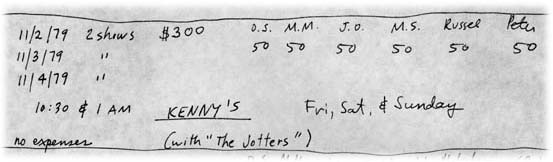 11/2/79 2 shows $300 D.S. M.M. J.O. M.S. Russel Peter
11/3/79 " 50 50 50 50 50 50
11/4/79 "
10:30 & 1 AM KENNY'S Fri, Sat, & Sunday
no expenses (with "The Jotters")